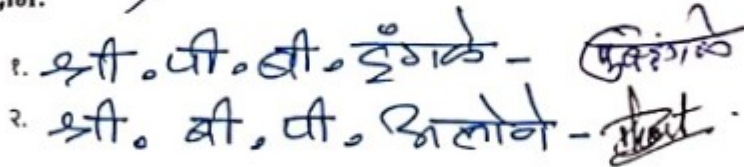 १. श्री. पी. बी. इंगळे -
२. श्री. बी. पी. अलोने -